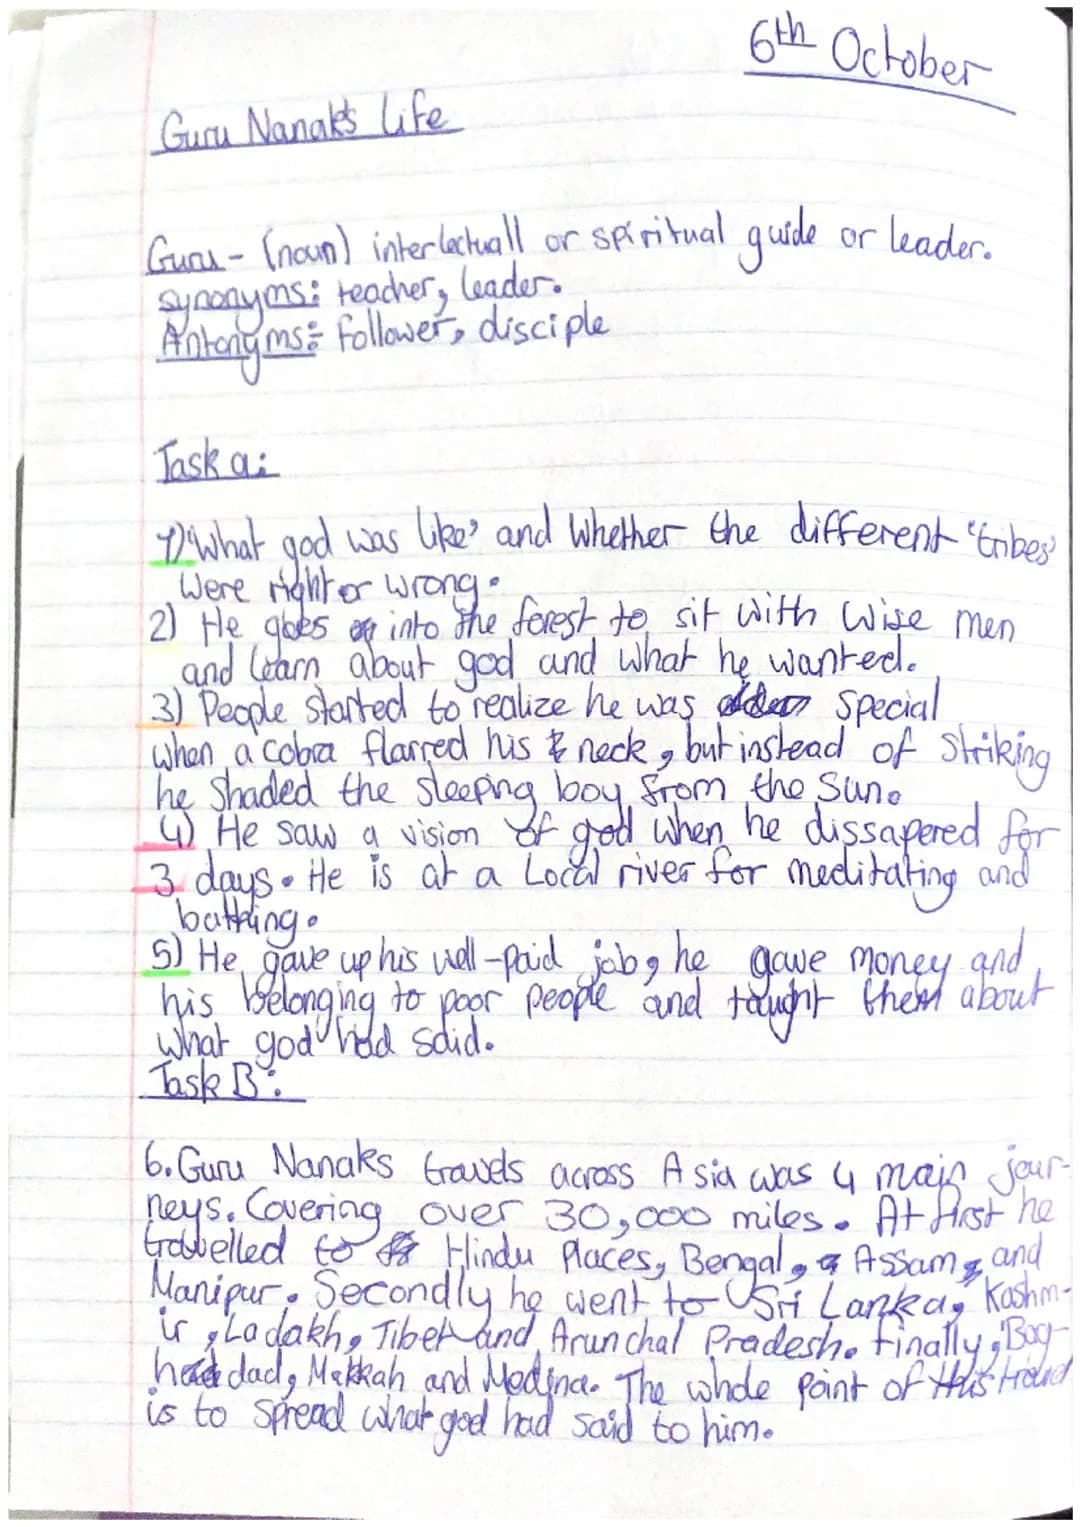 6th October
Guru Nanak's life
Guru - (noun) interlectuall or spiritual guide or leader.
synonyms: teacher, leader.
Antonyms: follower, disciple
Task a:
1) 'What god was like' and whether the different 'tribes'
were right or wrong.
2) He goes into the forest to sit with wise men
and learn about god and what he wanted.
3) People started to realize he was special
when a cobra flarred his neck, but instead of striking
he shaded the sleeping boy from the sun.
4) He saw a vision of god when he dissapered for
3 days. He is at a local river for meditating and
bathing.
5) He gave up his well-paid job, he gave money and
his belonging to poor people and taught them about
what god had said.
Task B:
6. Guru Nanaks travels across Asia was 4 main jour-
neys. Covering over 30,000 miles. At first he
travelled to Hindu Places, Bengal, Assam, and
Manipur. Secondly he went to Sri Lanka, Kashm-
ir, Ladakh, Tibet and Arunchal Pradesh. Finally, Bag-
dad, Makkah and Medina. The whole point of this travel
is to spread what god had said to him.